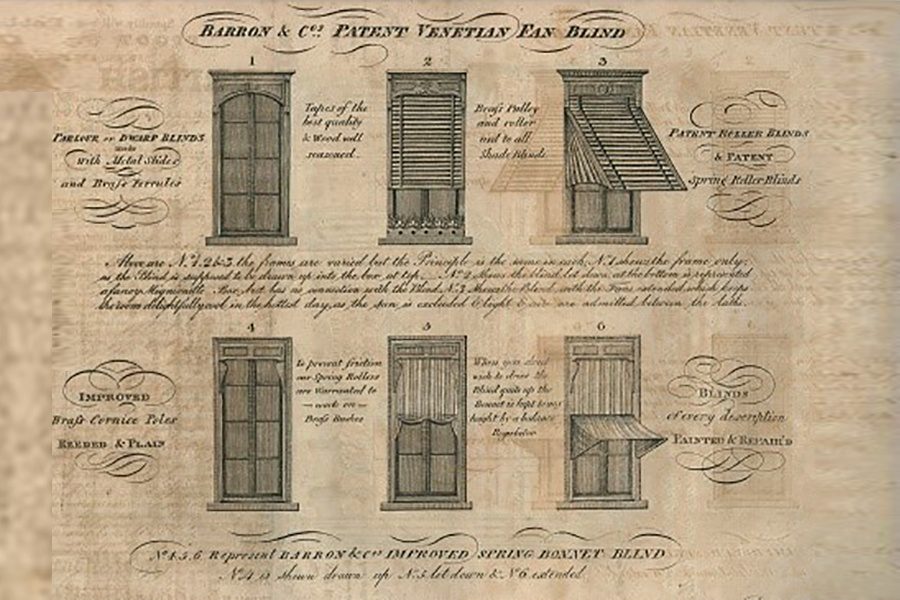 BARRON & Cos PATENT VENETIAN FAN BLIND
1
2
3
PARLOUR or DWARF BLINDS
made
with Metal Slides
and Braſs Ferrules
Tapes of the
best quality
& Wood well
seasoned.
Braſs Pulley
and roller
aid to all
Shade Blinds
PATENT ROLLER BLINDS
& PATENT
Spring Roller Blinds
Above are No. 1, 2 & 3, the frames are varied but the Principle is the same in each, No. 1 shews the frame only;
as the Blind is supposed to be drawn up into the box at top. No. 2 shews the blind let down, at the bottom is represented
a fancy Mignonette Box, but has no connection with the Blind, No. 3 Shews the Blind with the Fans extended which keeps
the room delightfully cool in the hottest day, as the sun is excluded & light & air are admitted between the laths.
4
5
6
IMPROVED
Braſs Cornice Poles
REEDED & PLAIN
To prevent friction
our Spring Rollers
are warranted to
work on
Braſs Bushes
When you dont
wish to draw the
Blind quite up the
Bonnet is kept to any
height by a balance
Regulator
BLINDS
of every description
PAINTED & REPAIR'D
No. 4. 5. 6 Represent BARRON & Co's IMPROVED SPRING BONNET BLIND
No. 4 is shewn drawn up No. 5 let down & No. 6 extended